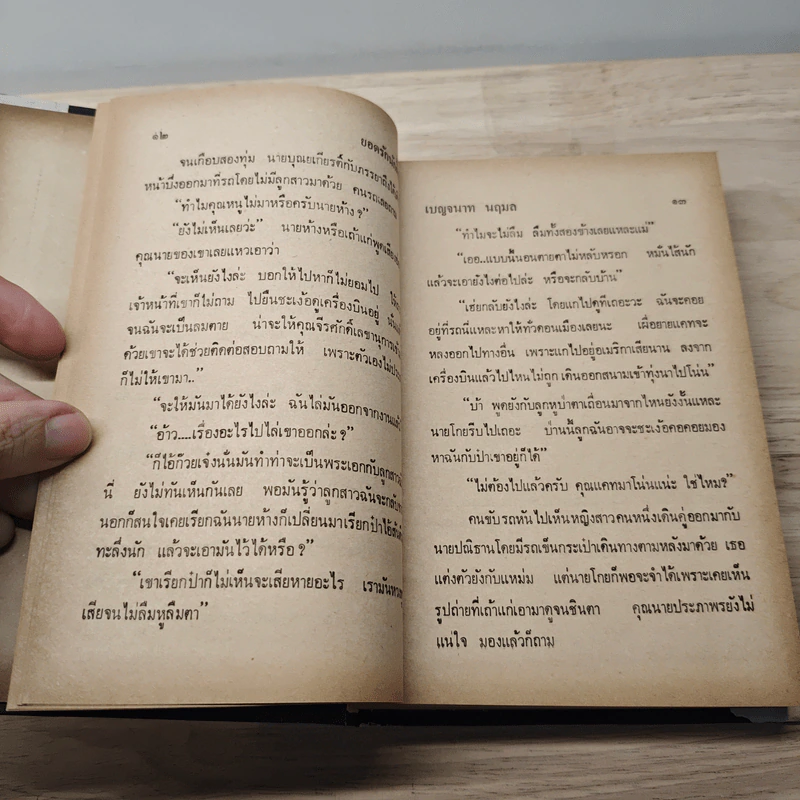 ๑๒
ยอดรัก
จนเกือบสองทุ่ม นายบุณยเกียรติ์กับภรรยาถึงได้
หน้าบึ้งออกมาที่รถโดยไม่มีลูกสาวมาด้วย คนรถเลยถาม
“ทำไมคุณหนูไม่มาหรือครับนายห้าง ?”
“ยังไม่เห็นเลยว่ะ” นายห้างหรือเถ้าแก่พูดเสียง
คุณนายของเขาเลยแหวเอาว่า
“จะเห็นยังไงล่ะ บอกให้ไปหาก็ไม่ยอมไป
เจ้าหน้าที่เขาก็ไม่ถาม ไปยืนชะเง้อดูเครื่องบินอยู่
จนฉันจะเป็นลมตาย น่าจะให้คุณจีรศักดิ์เลขานุการ
ด้วยเขาจะได้ช่วยติดต่อสอบถามให้ เพราะตัวเองไม่
ก็ไม่ให้เขามา..”
“จะให้มันมาได้ยังไงล่ะ ฉันไล่มันออกจากงาน
“อ้าว....เรื่องอะไรไปไล่เขาออกล่ะ ?”
“ก็ไอ้ก๊วยเจ๋งนั่นมันทำท่าจะเป็นพระเอกกับลูกสาว
นี่ ยังไม่ทันเห็นกันเลย พอมันรู้ว่าลูกสาวฉันจะกลับ
นอกก็สนใจเคยเรียกฉันนายห้างก็เปลี่ยนมาเรียกป๋าไอ้
ทะลึ่งนัก แล้วจะเอามันไว้ได้หรือ ?”
“เขาเรียกป๋าก็ไม่เห็นจะเสียหายอะไร เรามัน
เสียจนไม่ลืมหูลืมตา”
เบญจนาท นฤมล
๑๓
“ทำไมจะไม่ลืม ลืมทั้งสองข้างเลยแหละแม่”
“เออ..แบบนี้นอนตายตาไม่หลับหรอก หมั่นไส้นัก
แล้วจะเอายังไงต่อไปล่ะ หรือจะกลับบ้าน”
“เฮ่ยกลับยังไงล่ะ โดยแกไปดูทีเถอะวะ ฉันจะคอย
อยู่ที่รถนี่แหละหาให้ทั่วดอนเมืองเลยนะ เผื่อยายแคทจะ
หลงออกไปทางอื่น เพราะแกไปอยู่อเมริกาเสียนาน ลงจาก
เครื่องบินแล้วไปไหนไม่ถูก เดินออกสนามเข้าทุ่งนาไปโน่น”
“บ้า พูดยังกับลูกหูป่าตาเถื่อนมาจากไหนยังงั้นแหละ
นายโกยรีบไปเถอะ ป่านนี้ลูกฉันอาจจะชะเง้อคอคอยมอง
หาฉันกับป๋าเขาอยู่ก็ได้”
“ไม่ต้องไปแล้วครับ คุณแคทมาโน่นแน่ะ ใช่ไหม?”
คนขับรถหันไปเห็นหญิงสาวคนหนึ่งเดินคู่ออกมากับ
นายปณิธานโดยมีรถเข็นกระเป๋าเดินทางตามหลังมาด้วย เธอ
แต่งตัวยังกับแหม่ม แต่นายโกยก็พอจะจำได้เพราะเคยเห็น
รูปถ่ายที่เถ้าแก่เอามาดูจนชินตา คุณนายประภาพรยังไม่
แน่ใจ มองแล้วก็ถาม